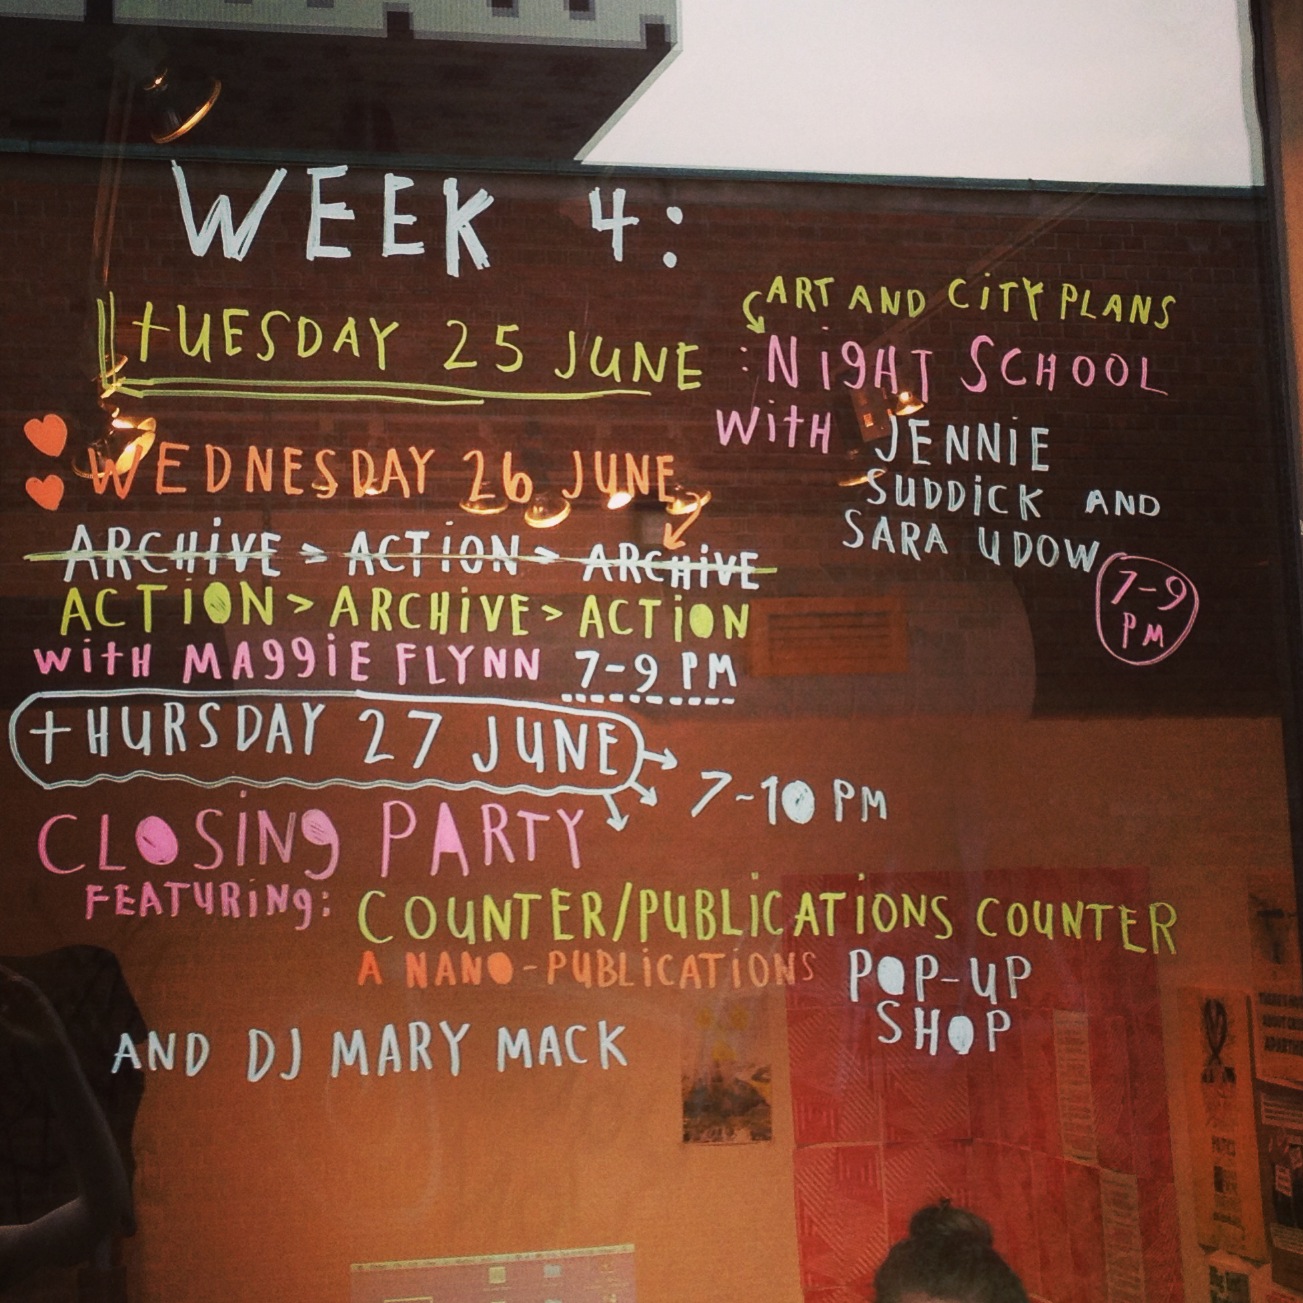 WEEK 4:
TUESDAY 25 JUNE
ART AND CITY PLANS
:NIGHT SCHOOL
WITH JENNIE
SUDDICK AND
SARA UDOW
7-9
PM
WEDNESDAY 26 JUNE
ARCHIVE > ACTION > ARCHIVE
ACTION > ARCHIVE > ACTION
WITH MAGGIE FLYNN 7-9 PM
THURSDAY 27 JUNE
7-10 PM
CLOSING PARTY
FEATURING: COUNTER/PUBLICATIONS COUNTER
A NANO-PUBLICATIONS POP-UP
SHOP
AND DJ MARY MACK